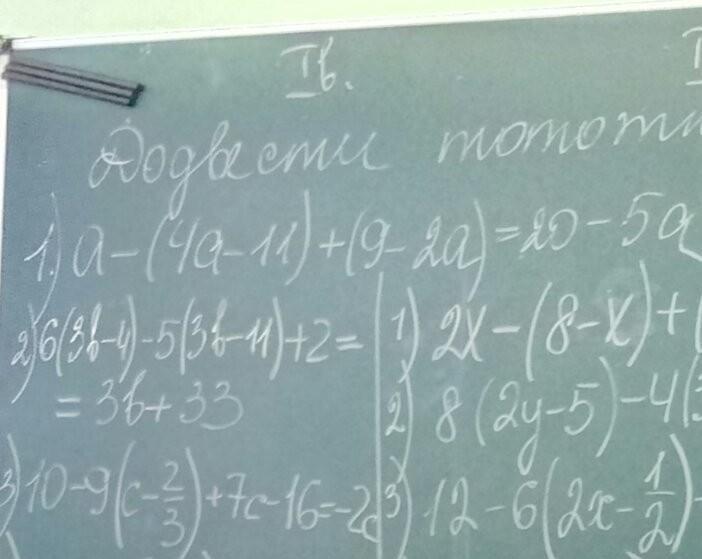 I в.
Довести тотожн
1) a-(4a-11)+(9-2a)=20-5a
2) 6(3b-4)-5(3b-11)+2=
=3b+33
3) 10-9(c-2/3)+7c-16=-2c
1) 2x-(8-x)+(
2) 8(2y-5)-4(3
3) 12-6(2x-1/2)-